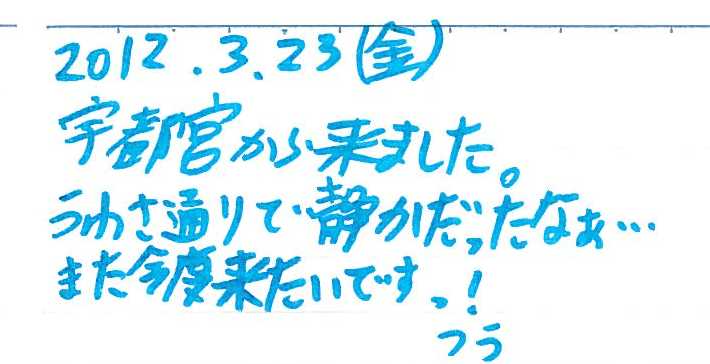 2012.3.23(金)
宇都宮から来ました。
うわさ通りで静かだったなぁ…
また今度来たいですっ!
つう